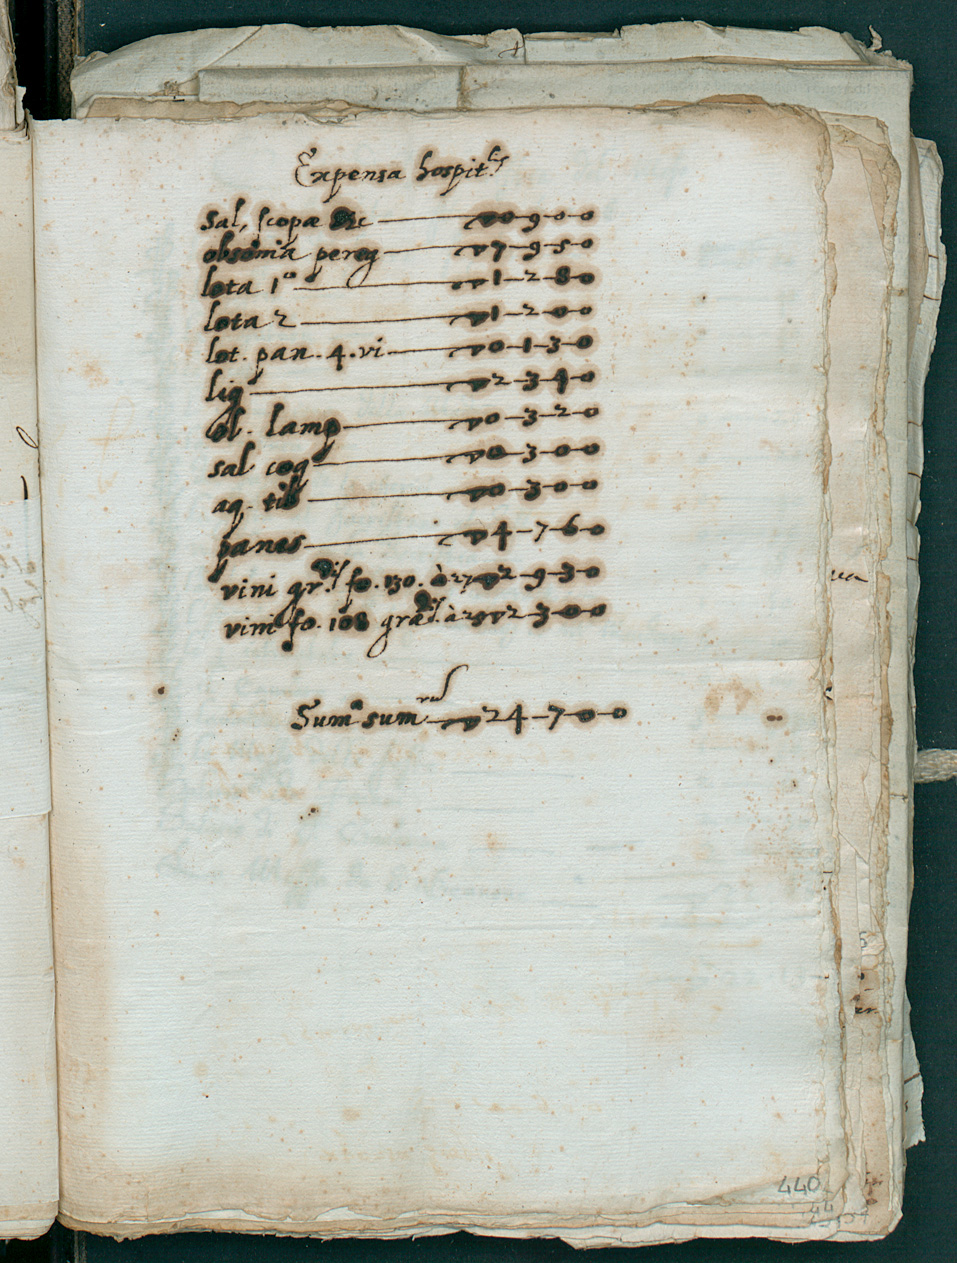 Expensa hospit^lis
Sal, scopæ &c — ▽0-9-0-0
obsonia pereg — ▽7-9-5-0
lota 1^a — ▽1-2-8-0
lota 2 — ▽1-2-0-0
lot. pan. 4. vi — ▽0-1-3-0
lig — ▽2-3-4-0
ol. lamp — ▽0-3-2-0
sal coq — ▽0-3-0-0
aq. tib — ▽0-3-0-0
panes — ▽4-7-6-0
vini gr. fo. 130. à 27 ▽2-9-3-0
vini fo. 108 à ▽2-3-0-0
Sum^a sum — ▽24-7-0-0
440